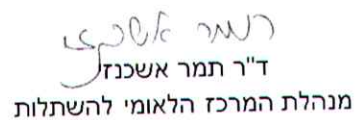 תמר אשכנזי
ד"ר תמר אשכנזי
מנהלת המרכז הלאומי להשתלות